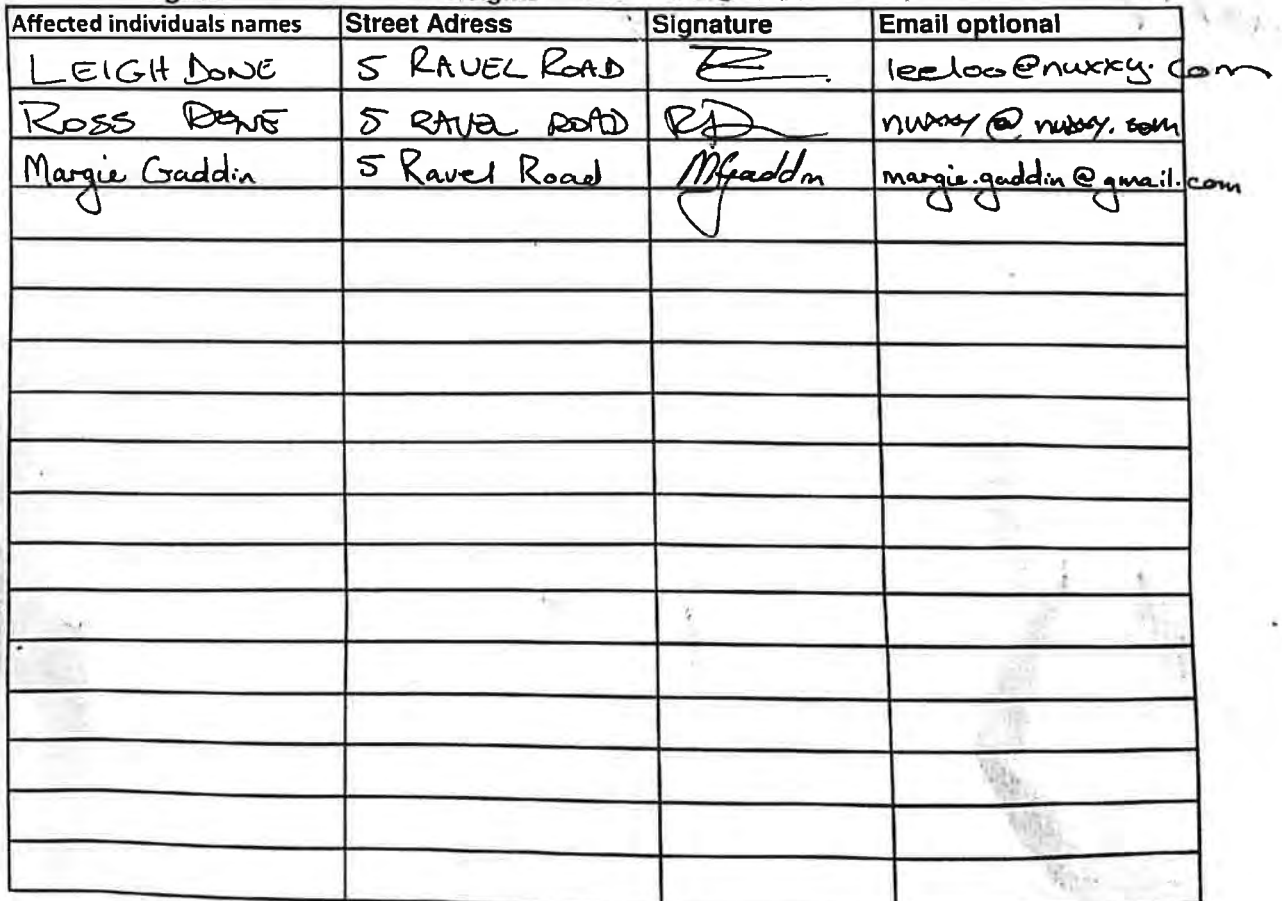 Affected individuals names Street Adress Signature Email optional
LEIGH DONE 5 RAVEL ROAD leeloo@nuxxy.com
ROSS DONE 5 RAVEL ROAD RD nuxxy@nuxxy.com
Margie Gaddin 5 Ravel Road MGaddin margie.gaddin@gmail.com